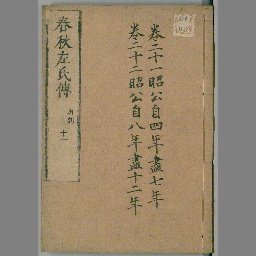 春秋左氏傳
十一
卷二十一昭公自四年盡七年
卷二十二昭公自八年盡十二年